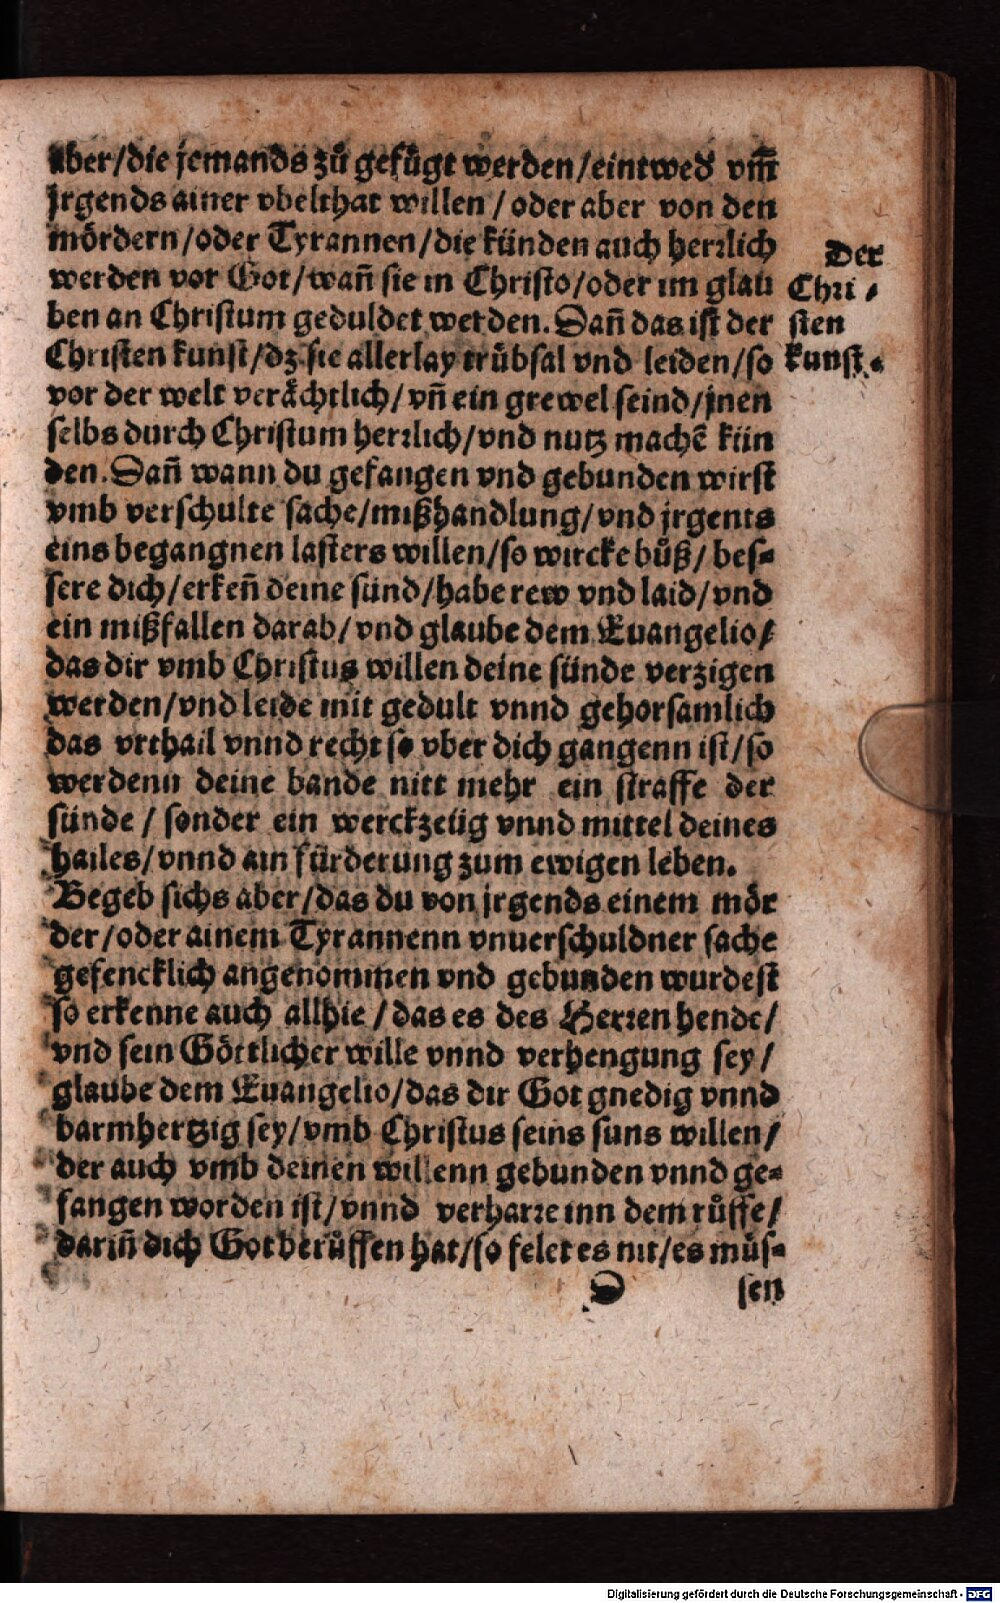 aber/die jemands zů gefügt werden/eintwed' vm̃
jrgends ainer vbelthat willen / oder aber von den
mördern/oder Tyrannen/die künden auch herꝛlich
werden vor Got/wañ sie in Christo/oder im glau
ben an Christum geduldet werden. Dañ das ist der
Christen kunst/dz sie allerlay trübsal vnd leiden/so
vor der welt verächtlich/vñ ein grewel seind/jnen
selbs durch Christum herꝛlich/vnd nutz machẽ kün
den. Dañ wann du gefangen vnd gebunden wirst
vmb verschulte sache/mißhandlung/vnd jrgents
eins begangnen lasters willen/so wircke bůß/bes-
sere dich/erkeñ deine sünd/habe rew vnd laid/vnd
ein mißfallen darab/vnd glaube dem Euangelio/
das dir vmb Christus willen deine sünde verzigen
werden/vnd leide mit gedult vnnd gehorsamlich
das vrthail vnnd recht so vber dich gangenn ist/so
werdenn deine bande nitt mehr ein straffe der
sünde / sonder ein werckzeüg vnnd mittel deines
hailes/vnnd ain fürderung zum ewigen leben.
Begeb sichs aber/das du von jrgends einem mör
der/oder ainem Tyrannenn vnuerschuldner sache
gefencklich angenommen vnd gebunden wurdest
so erkenne auch allhie / das es des Herꝛen hende/
vnd sein Göttlicher wille vnnd verhengung sey/
glaube dem Euangelio/das dir Got gnedig vnnd
barmhertzig sey/vmb Christus seins suns willen/
der auch vmb deinen willenn gebunden vnnd ge-
fangen worden ist/vnnd verharꝛe inn dem růffe/
dariñ dich Got berůffen hat/so felet es nit/es müs-
D sen
Der
Chri-
sten
kunst.
Digitalisierung gefördert durch die Deutsche Forschungsgemeinschaft - DFG